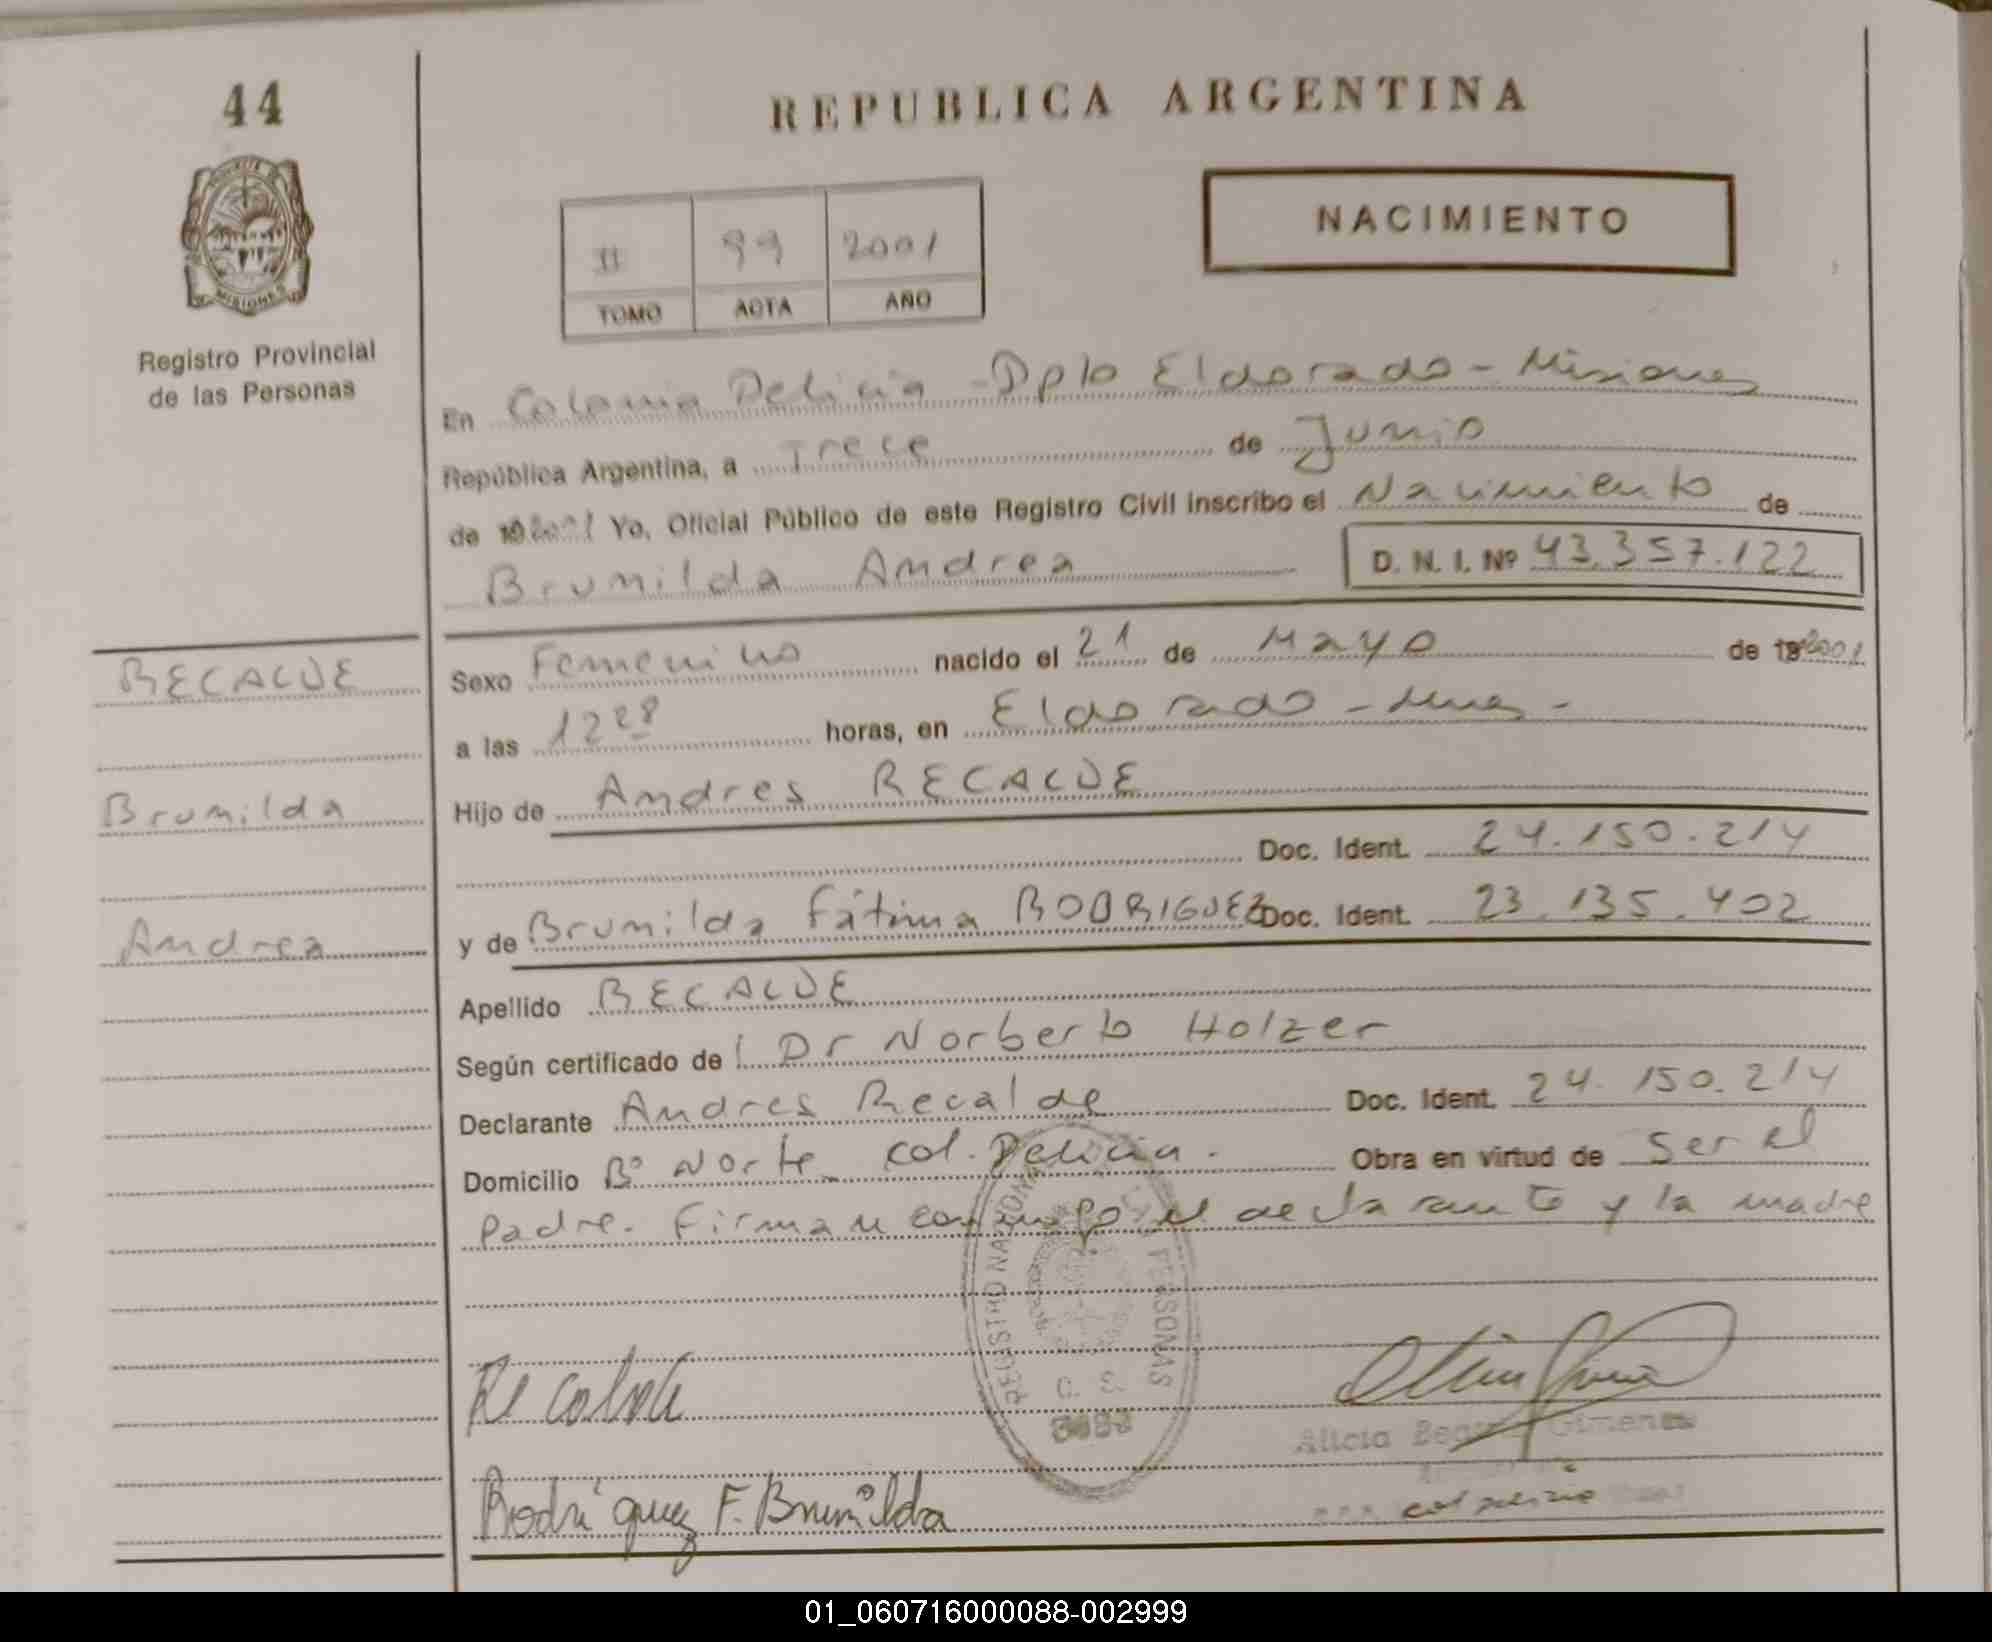 44
REPUBLICA ARGENTINA
MISIONES
Registro Provincial
de las Personas
II 99 2001
TOMO ACTA AÑO
NACIMIENTO
En Colonia Delicia - Dpto Eldorado - Misiones
República Argentina, a Trece de Junio
de 2001 Yo, Oficial Público de este Registro Civil inscribo el Nacimiento de
Brunilda Andrea D. N. I. Nº 43.357.122
RECALDE
Brunilda
Andrea
Sexo Femenino nacido el 21 de Mayo de 2001
a las 12 28 horas, en Eldorado - Mnes -
Hijo de Andres RECALDE
Doc. Ident. 24.150.214
y de Brunilda Fátima RODRIGUEZ Doc. Ident. 23.135.402
Apellido RECALDE
Según certificado de Dr Norberto Holzer
Declarante Andres Recalde Doc. Ident. 24.150.214
Domicilio Bº Norte Col. Delicia. Obra en virtud de ser el
padre. Firman conmigo el declarante y la madre
REGISTRO PERSONAS
Recalde
Alicia Gimenez
Rodriguez F. Brunilda
01_060716000088-002999